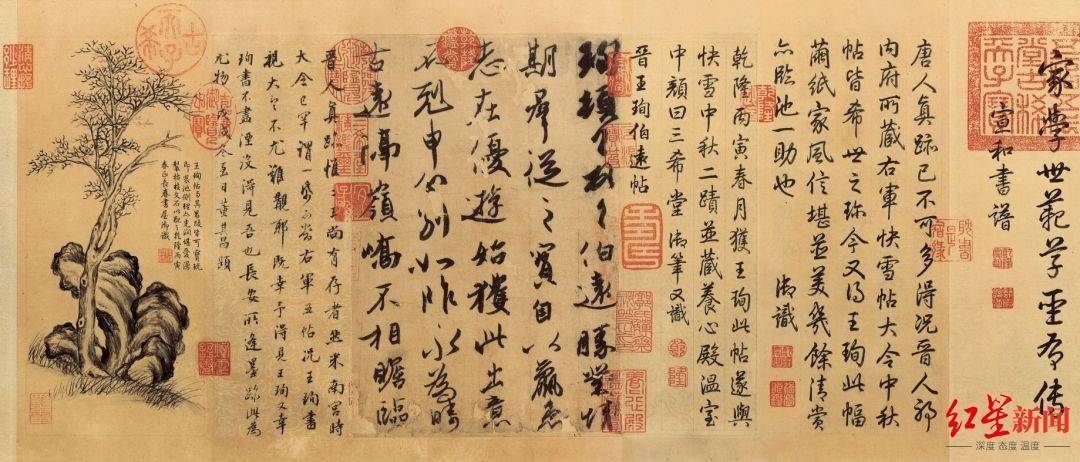 家學世範草聖有傳
宣和書譜
唐人真跡已不可多得況晉人耶
內府所藏右軍快雪帖大令中秋
帖皆希世之珍今又得王珣此幅
繭紙家風信堪並美幾餘清賞
亦臨池一助也 御識
乾隆丙寅春月獲王珣此帖遂與
快雪中秋二蹟並藏養心殿溫室
中顏曰三希堂 御筆又識
晉王珣伯遠帖
珣頓首頓首伯遠勝業情
期羣從之寶自以羸患
志在優遊始獲此出意
不剋申分別如昨永為疇
古遠隔嶺嶠不相瞻臨
晉人真跡惟二王尚有存者然米南宮時
大令已罕謂一紙可當右軍五帖況王珣書
視大令不尤難覯耶既幸予得見王珣又幸
珣書不盡湮沒得見吾也長安所逢墨跡此為
尤物戊戌冬至日董其昌題
王珣帖與其昌跋皆可寶玩
即裝池側理亦光潤堪愛漫
製枯枝文石以配之乾隆丙寅
春正長春書屋御識
古希天子
红星新闻
深度 态度 温度